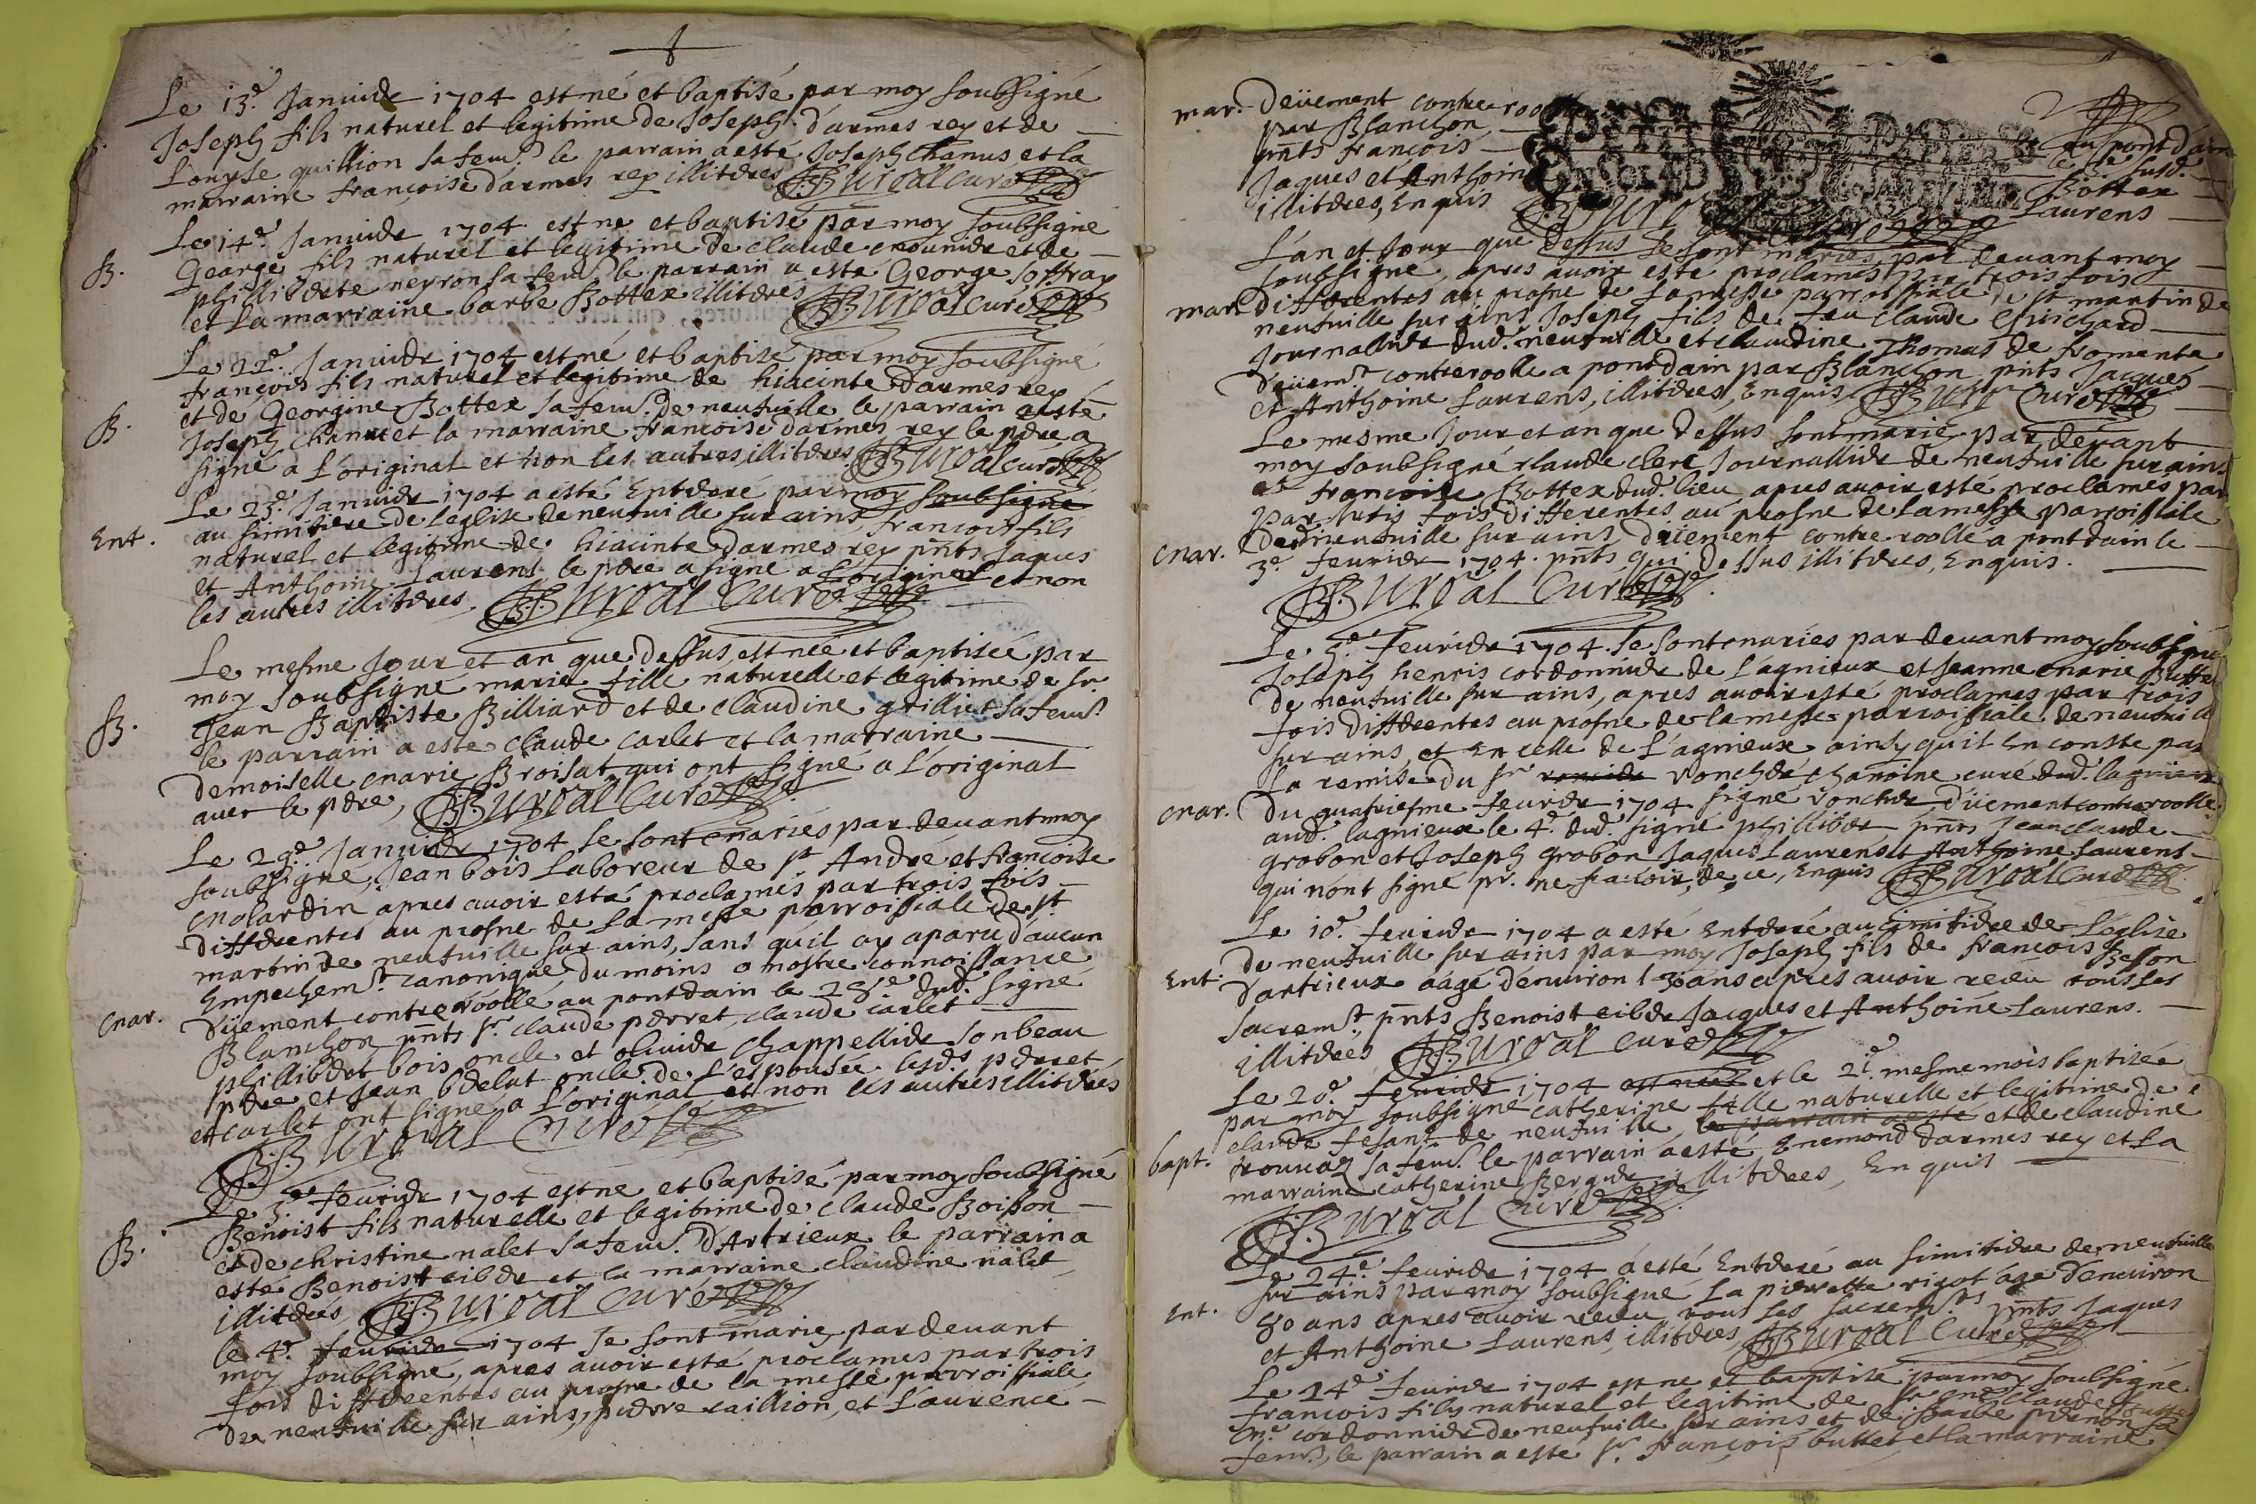 Le 13e. Januier 1704 est né et baptisé par moy soubsigné
Joseph fils naturel et legitime de Joseph d'armes rey et de
Louyse quillion sa fem.e le parrain a esté Joseph Chanus et la
marraine françoise d'armes rey illiteres Buroal curé
B.
Le 14e. Januier 1704 est né et baptisé par moy soubsigné
George fils naturel et legitime de claude et de
phillibérte neyron sa fem.e le parrain a esté George Joffray
et la marraine barbe Bottex illiteres Buroal curé
B.
Le 22e. Januier 1704 est né et baptisé par moy soubsigné
françois fils naturel et legitime de hiacinte d'armes rey
et de Georgine Bottex sa fem.e de neufuille le parrain a esté
Joseph Chanus et la marraine francoise d'armes rey le pere a
signé a L'original et non les autres illiteres Buroal curé
Ent.
Le 23e. Januier 1704 a esté Enterré par moy soubsigné
au simitiere de L'eglise de neufuille sur ains francois fils
naturel et legitime de hiacinte d'armes rey pñts Jaques
et Anthoine Laurens le pere a signe a L'original et non
les autres illiteres Buroal curé
B.
Le mesme Jour et an que dessus, est née et baptisée par
moy soubsigné marie fille naturelle et legitime de sr.
Jean Baptiste Billiard et de claudine grilliet sa fem.e
le parrain a esté claude carlet et la marraine
demoiselle marie Broisat qui ont signé a L'original
auec le pere, Buroal Curé
mar.
Le 29e. Januier 1704 se sont mariés par deuant moy
soubsigné, Jean bois Laboreur de st André et françoise
molardin apres auoir esté proclamés par trois fois
differentes au prosne de La messe parroissiale de st
martin de neufuille sur ains, sans qu'il ay aparu d'aucun
Empechem.t canonique, du moins a nostre connoissance
düement controroollé au pontdain le 28e dud. signé
Blanchon pñts sr. claude perret, claude carlet
phillibert bois oncle et oliuier chappellier son beau
pere et Jean belut oncle de L'espousée lesd.s perret
et carlet ont signé a L'original et non les autres illiteres
Buroal Curé
B.
Le 3e feurier 1704 est né et baptisé par moy soubsigné
Benoist fils naturelle et legitime de claude Boisson
et de christine nalet sa fem.e d'Artrieux le parrain a
esté Benoist eiber et la marraine claudine nalet
illiteres Buroal Curé
le 4e. feurier 1704 se sont mariés par deuant
moy soubsigné, apres auoir esté proclames par trois
fois differentes au prosne de la messe parroissiale
de neufuille sur ains, pierre caillion, et Laurence
mar.
Deüement contreroo
par Blanchon au pont d'ain
pñts françois le susd.
Jaques et Anthoine Bottex
illiteres, Enquis Buroal Laurens
mar.
L'an et Jour que dessus se sont mariés par deuant moy
soubsigné, apres auoir esté proclamés par trois fois
differentes au prosne de La messe parroissiale de st martin de
neufuille sur ains Joseph fils de feu claude Guichard
Journallier dud. neufuille et claudine Thomas de fromente
düem.t controroollé a pontdain par Blanchon pñts Jacques
et Anthoine Laurens, illiteres, Enquis Buroal Curé
mar.
Le mesme Jour et an que dessus sont mariés par deuant
moy soubsigné claude clerc Journallier de neufuille sur ains
et francoise Bottex dud. lieu apres auoir esté proclamés par
par trois fois differentes au prosne de La messe parroissiale
de neufuille sur ains düement controroollé a pontdain le
3e feurier 1704. pñts qui dessus illiteres, Enquis.
Buroal Curé
mar.
Le 5e feurier 1704. se sont mariés par deuant moy soubsigné
Joseph henris cordonnier de Lagnieux et Jeanne marie Buffet
de neufuille sur ains, apres auoir esté proclamés par trois
fois differentes au prosne de la messe parroissiale de neufuille
sur ains et En celle de Lagnieux, ainsy qu'il En conste par
La remise du sr. vonchér chanoine curé dud. lagnieux
du quatriesme feurier 1704 signé voncher, düement controroollé
aud. lagnieux le 4e. dud. signé phillibert pñts Jean claude
grobon et Joseph grobon Jaques Laurens et Anthoine Laurens
qui n'ont signé pr. ne sçauoir, de ce, Enquis Buroal Curé
Ent.
Le 10e. feurier 1704 a esté Enterré au cimitiere de L'eglise
de neufuille sur ains par moy Joseph fils de françois Besson
d'artrieux aágé d'enuiron 30 ans apres auoir reçeu tous les
sacrem.ts, pñts Benoist eiber Jacques et Anthoine Laurens.
illiteres Buroal Curé
bapt.
Le 20e. feurier 1704 est née et le 21e. mesme mois baptisée
par moy soubsigné catherine fille naturelle et legitime de
claude fesant de neufuille, le parrain a esté et de claudine
sa fem.e le parrain a esté, Enemond d'armes rey et La
marraine catherine Berger illiteres, En quis
Buroal Curé
Ent.
Le 24e. feurier 1704 a esté Enterré au simitiere de neufuille
sur ains par moy soubsigné La pierrette rigot agé d'enuiron
50 ans apres auoir reçeu tous les sacrem.ts pñts Jaques
et Anthoine Laurens, illiteres, Buroal Curé
Le 24e feurier 1704 est ne et baptisé par moy soubsigné
francois fils naturel et legitim de sr. claude
me. cordonnier de neufuille sur ains et de barbe pernon sa
fem.e, le parrain a esté sr. françois buffet et la marraine